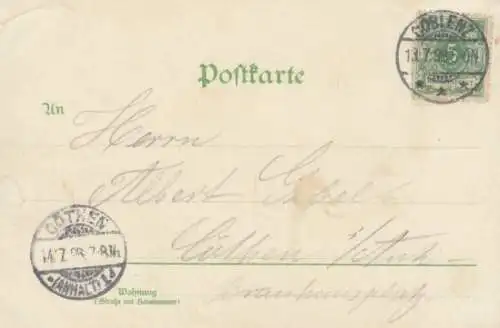 COBLENZ
13.7.98. 5-6N
5
Postkarte
An
Herrn
Albert
Cöthen i/Anh
CÖTHEN
14.7.98. 7-8V.
* (ANHALT) 1 d
Wohnung
(Straße und Hausnummer)